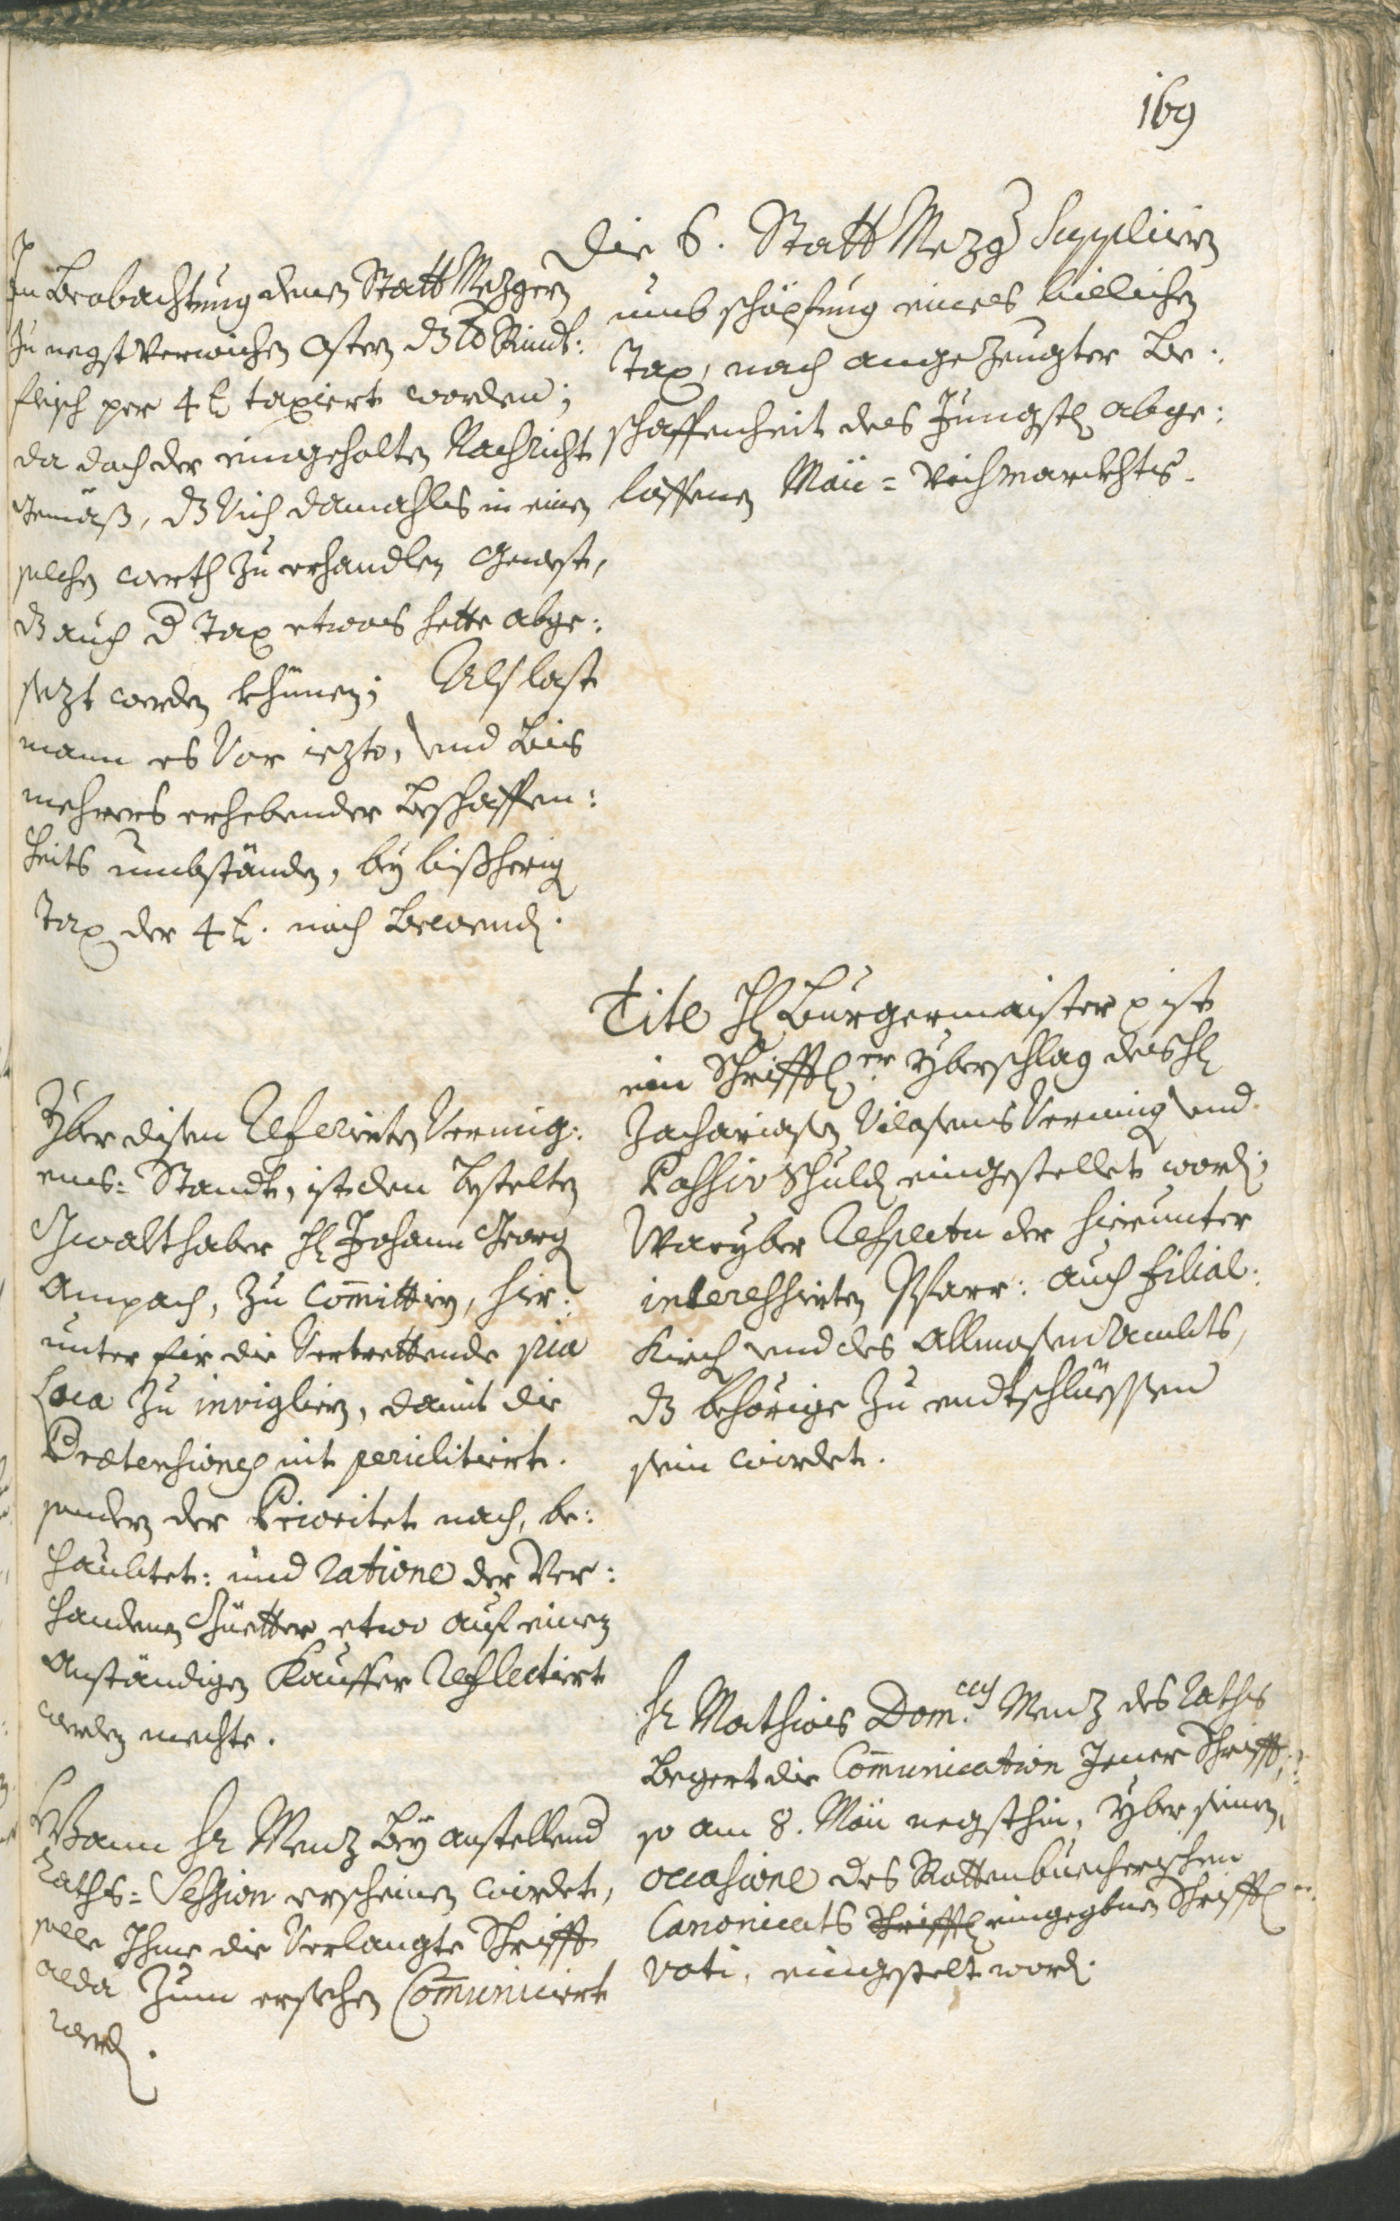 169
Die 6. Statt Mezger Supplicieren
umb schöpfung eines billichen
Tax, nach angezeugter Be:
schaffenheit des Jungst abge:
loffenen Maii = Vichmarckhts.
In Beobachtung denen Statt Mezgern
zu negst verwichen Ostern dz ℔ Rindt:
fleisch per 4 xr taxiert worden;
da doch der eingeholten Nachricht
gemäß, dz Vich damahls in einen
solchen werth zu erhandlen gewest,
dz auch d Tax etwas hette abge:
sezt werden khünen; Als last
mann es Vor iezto, und Bis
mehrers erhebender beschaffen:
heits umbständen, bey bißherig
Tax der 4 xr. noch Bewend.
Titl H Burgermaister ist
ein Schrifftl.er yberschlag des H
Zacharias Vermög und
Passiv Schuld eingestellet word;
Waryber Respectu der hierunter
interessirten Pfarr: auch Filial:
Kirch und des Allmosen Ambts,
dz behörige zu endtschlüessen
sein wirdet.
Yber disen Referirten Vermög:
ens= Standt, ist den bestelten
Gwalthaber H Johann Georg
Ampach, zu Committirn, hier:
unter fir die Vertrettende pia
Loca zu inviglirn, damit die
Praetensiones nit periclitiert.
sondern der Prioritet nach, be:
haubtet: und ratione der Ver:
handenen Güetter etwo auf einen
anständigen Kauffer Reflectiert
werden mechte.
Hr Mathias Dom.cus Menz des Raths
Begert die Communication Jener Schrifft;
so am 8. Maii negsthin, yber seinen,
occasione des Rottenbuecherischen
Canonicats Schrifftl eingegebnen Schrifftl.n
Voti, eingestelt word.
Wann Hr Menz Bey anstellend
Raths= Session erscheinen wirdet,
solle Ihme die Verlangte Schrifft
alda zum ersehen Communiciert
werd.